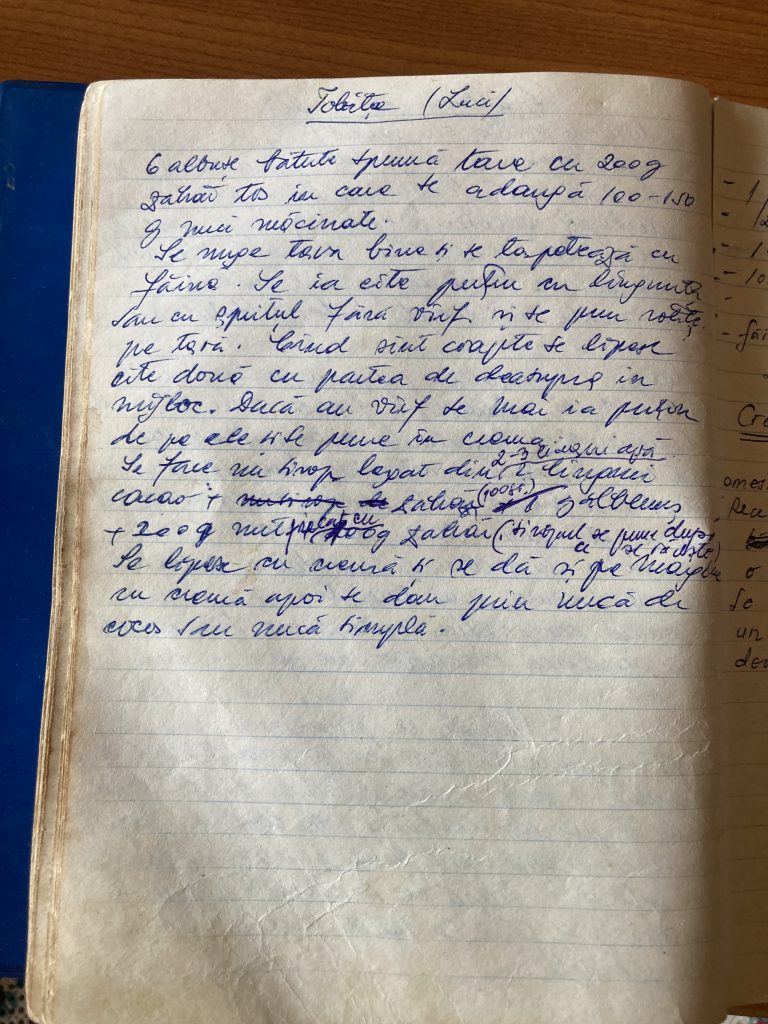 Tobița (Luci)
6 albușe bătute spumă tare cu 200g
zahăr tos in care se adaugă 100-150
g nuci măcinate.
Se unge tava bine și se tapetează cu
făină. Se ia cîte puțin cu lingurița
sau cu șprițul fără vîrf și se pun
pe tavă. Cînd sînt coapte se lipesc
cîte două cu partea de deasupra in
mijloc. Dacă au vîrf se mai ia puțin
de pe ele și se pune în cremă.
2-3 linguri apă
Se face un sirop legat din 2 linguri
cacao + zahăr (100gr.) gălbenuș
+ 200g unt frecat cu 200g zahăr (siropul se pune după
ce se răcește)
Se lipesc cu cremă și se dă și pe margine
cu cremă apoi se dau prin nucă de
cocos sau nucă simplă.
- 1/
- 1
- 10
- făi
Cre
ames
o
Se
un